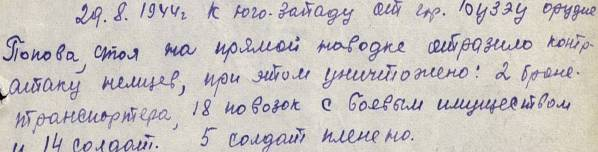 29.8.1944г к юго-западу от гор. Бузэу орудие
Попова, стоя на прямой наводке отразило контр-
атаку немцев, при этом уничтожено: 2 броне-
транспортера, 18 повозок с боевым имуществом
и 14 солдат. 5 солдат пленено.